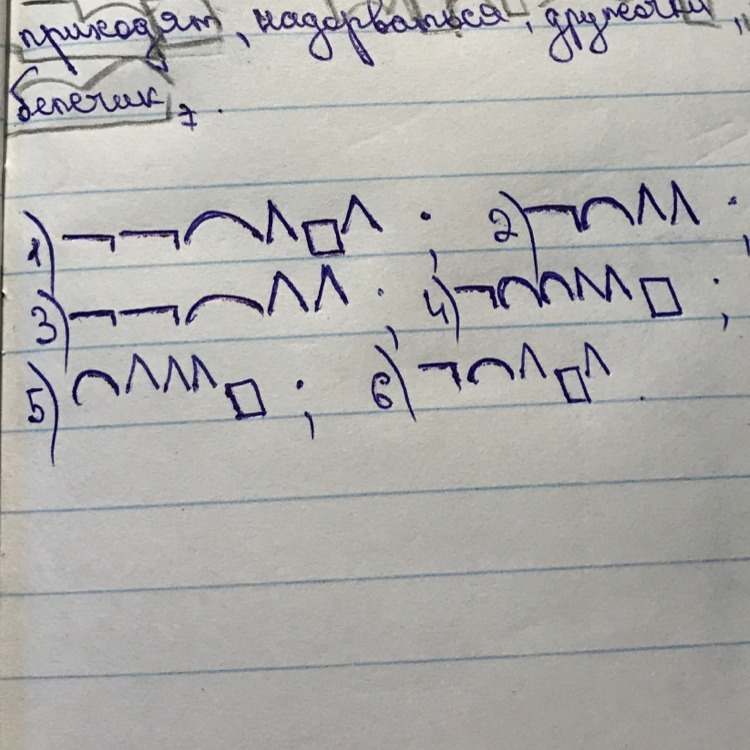 приходят, надорваться, дружочки,
бепечик,
1) ;  2) ;
3) ;  4) ;
5) ;  6) .